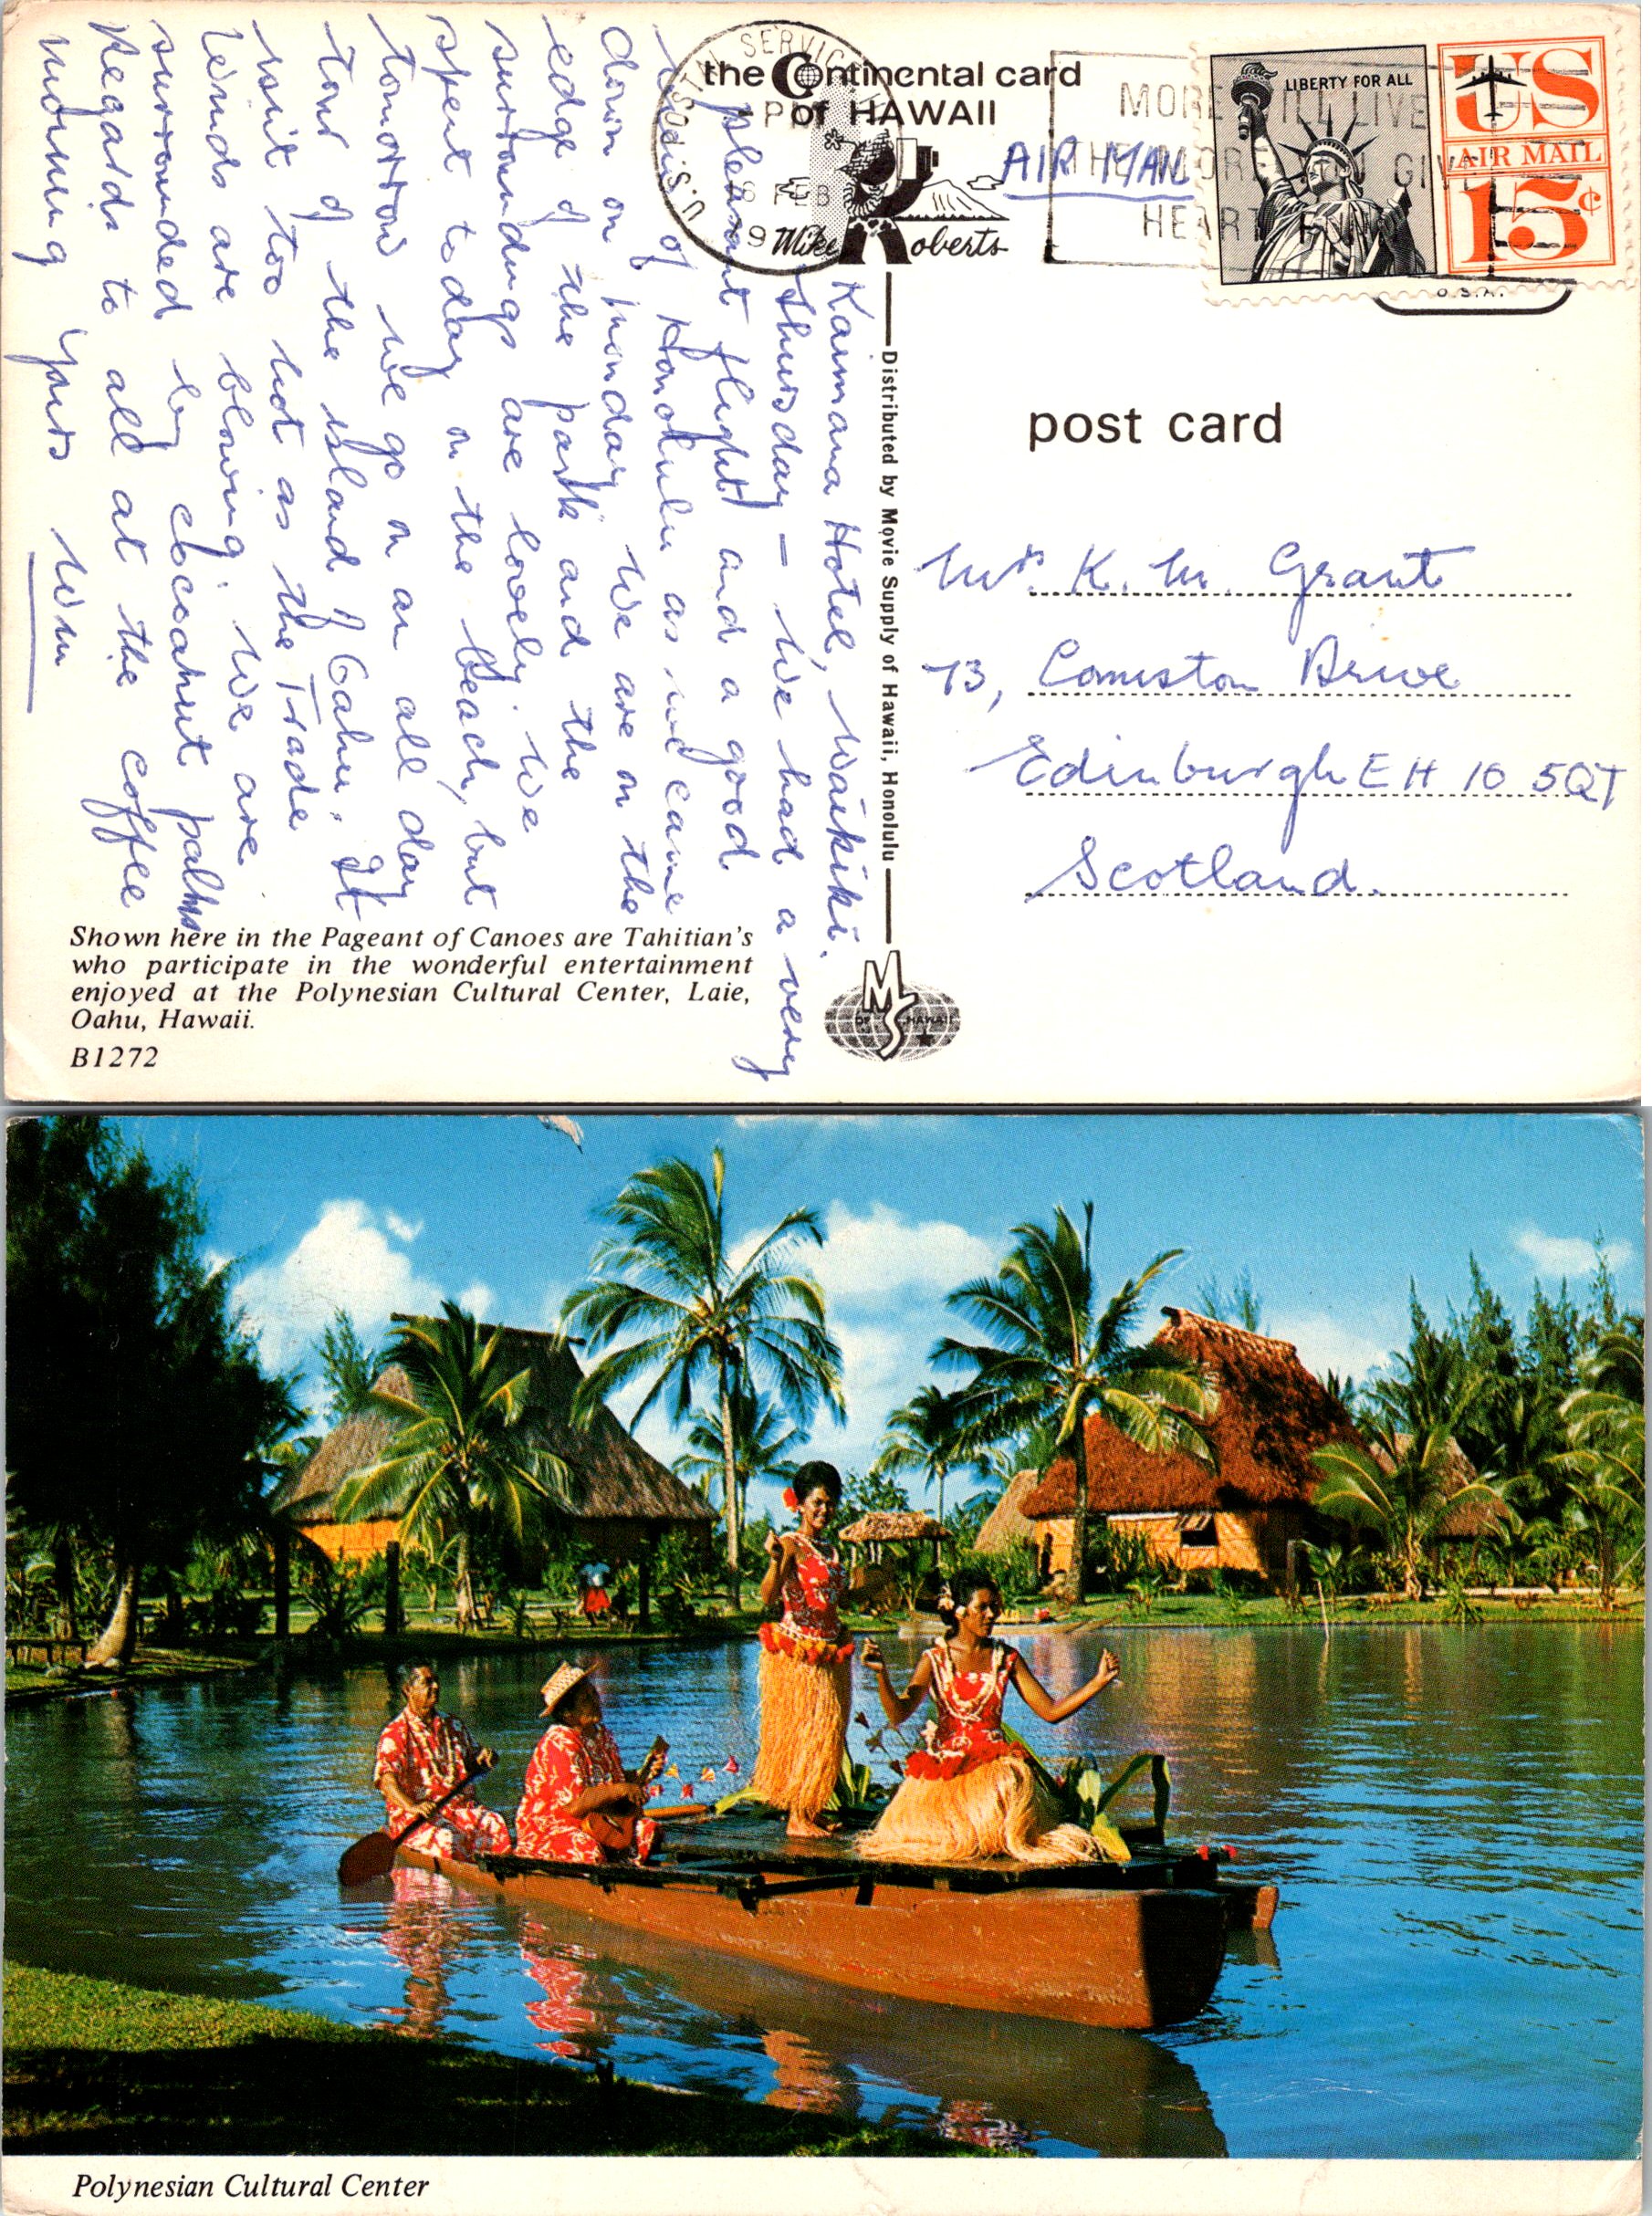 the Continental card
of HAWAII
Mike Roberts
U.S. POSTAL SERVICE
PM
FEB
MORE WILL LIVE
THE MORE YOU GIVE
HEART FUND
LIBERTY FOR ALL
US
AIR MAIL
15¢
U.S.A.
AIR MAIL
post card
Mrs. K. M. Grant
73, Comiston Drive
Edinburgh EH 10 5QT
Scotland.
Distributed by Movie Supply of Hawaii, Honolulu
MS
OF HAWAII
Kaimana Hotel, Waikiki.
Thursday – We had a very
pleasant flight and a good
view of Honolulu as we came
down on Monday. We are on the
edge of the park and the
surroundings are lovely. We
spent today on the beach, but
tomorrow we go on an all day
tour of the island of Oahu. It
isn't too hot as the Trade
Winds are blowing. We are
surrounded by cocoanut palms
Regards to all at the coffee
morning Yours Win
Shown here in the Pageant of Canoes are Tahitian's
who participate in the wonderful entertainment
enjoyed at the Polynesian Cultural Center, Laie,
Oahu, Hawaii.
B1272
Polynesian Cultural Center